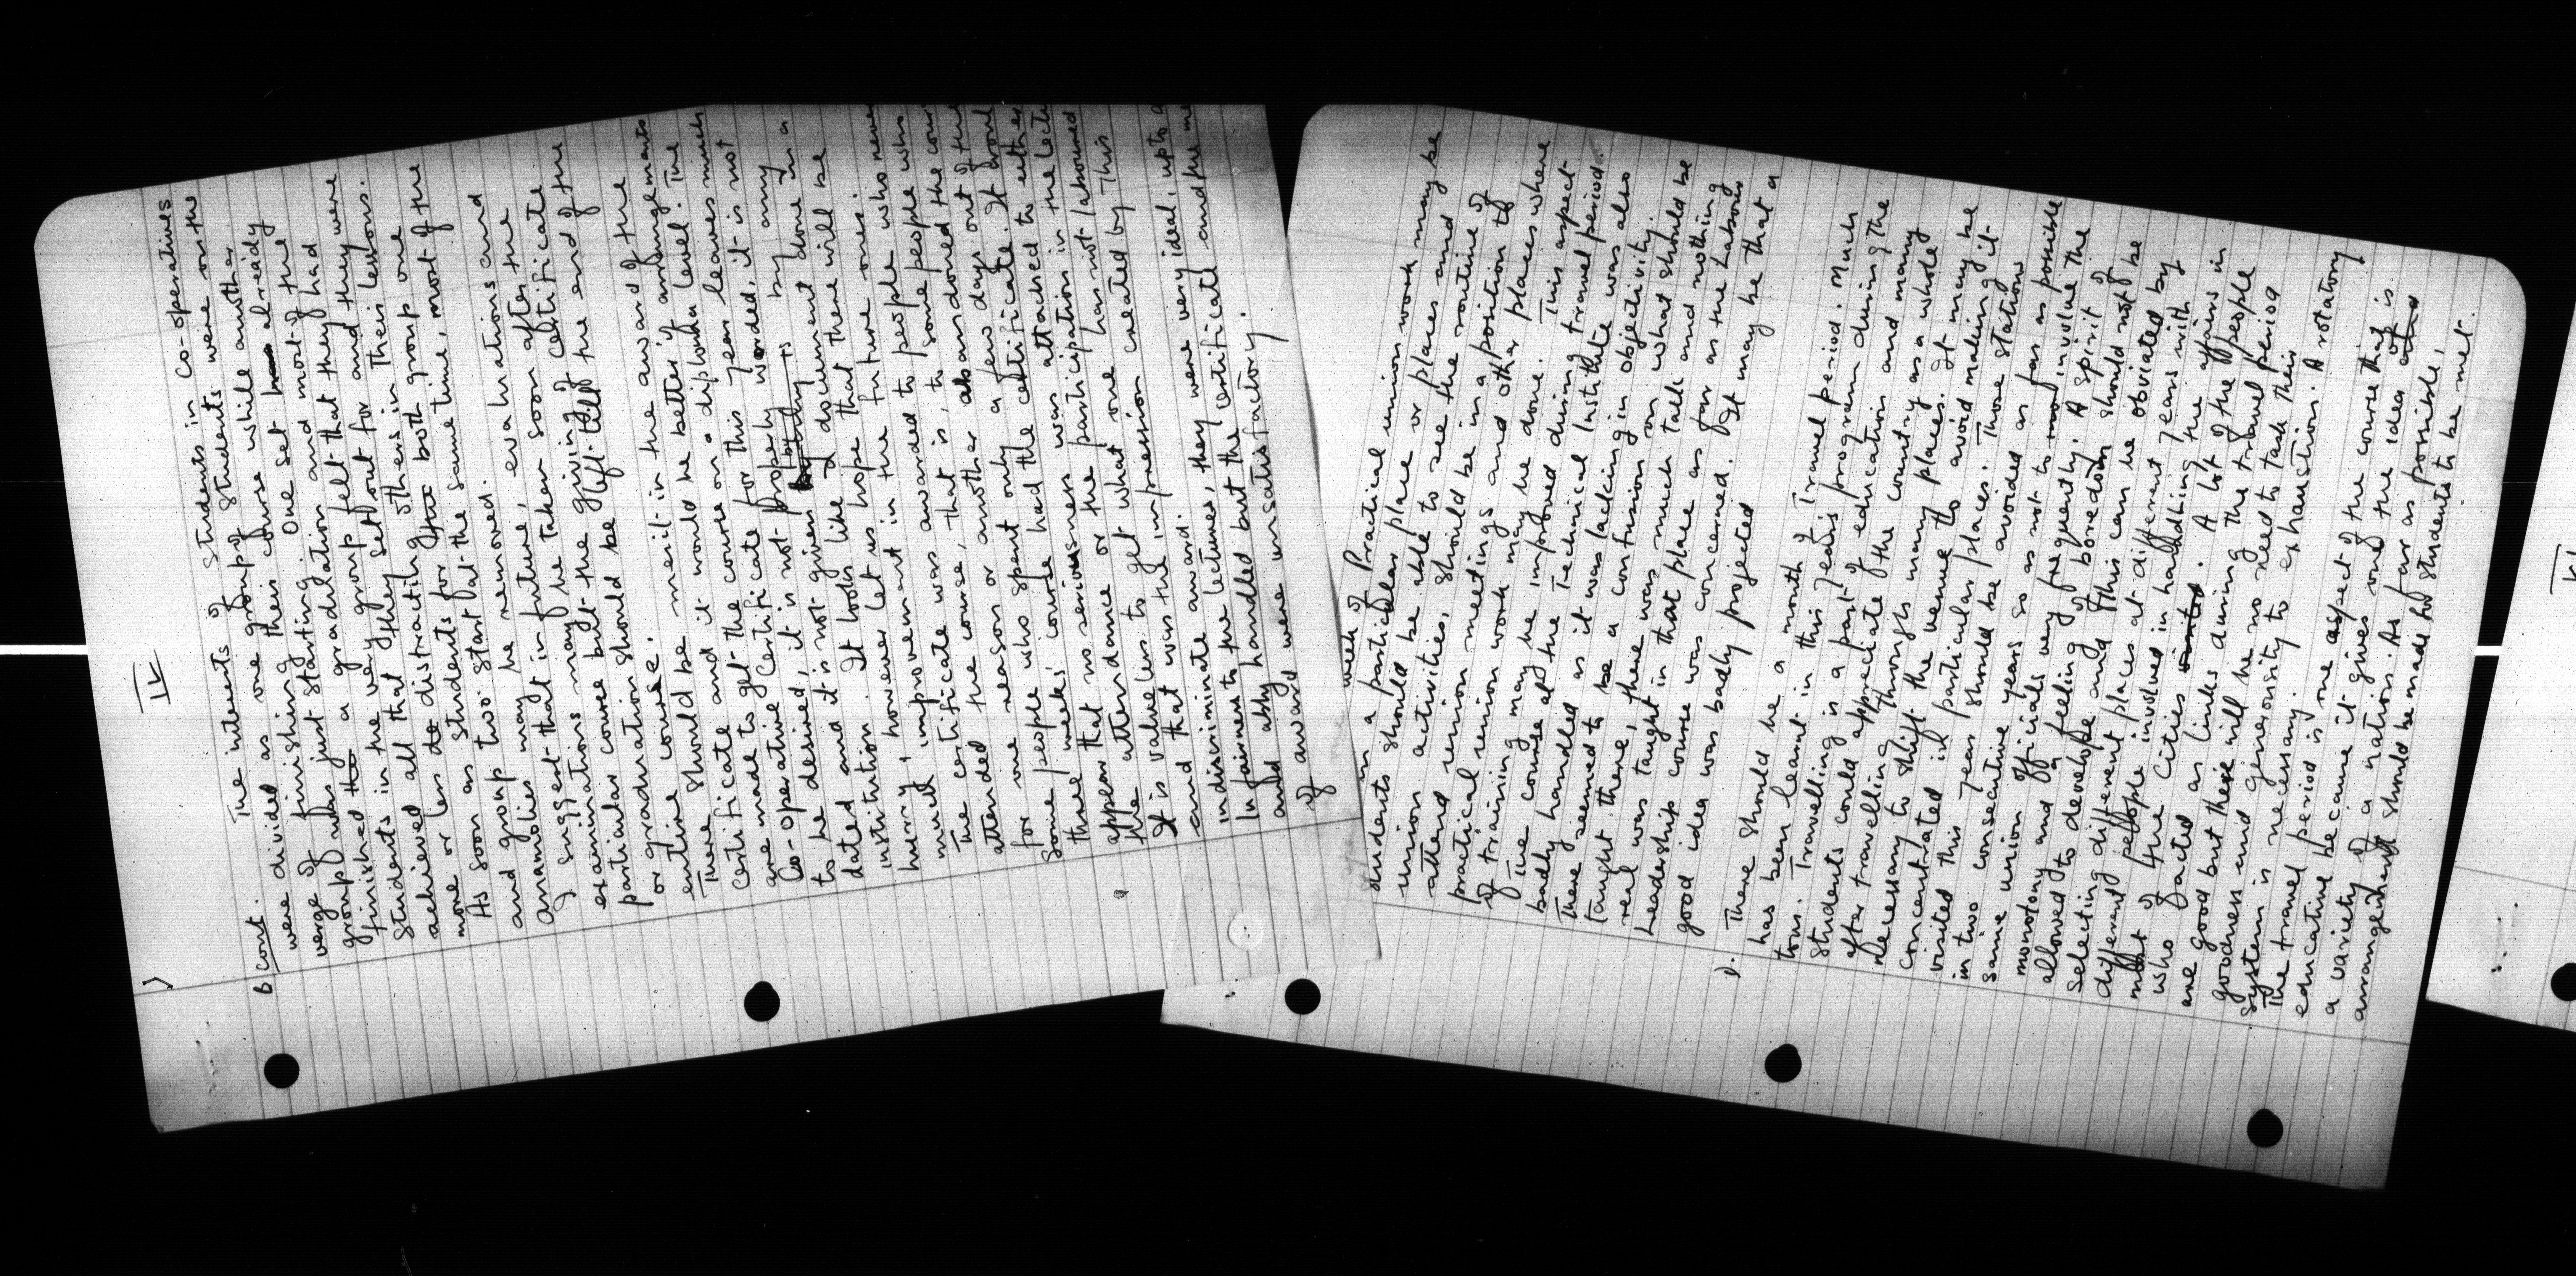 IV
B cont. The interests of students in co-operatives
were divided as one group of students were on the
verge of finishing their course while another
group was just starting. One set had already
finished the a gradulation and most of the
students in the very group felt that they had
achieved all that they set out for and they were
more or less de distracting others in their lessons.
As soon as students for the both group one
and group two start at the same time, most of the
anamolies may be removed.
I suggest that in future, evaluations and
examinations may be taken soon after the
particular course but the giving of certificate
or graduation should be left till the end of the
entire course.
There should be merit in the award of the
certificate and it would be better if arrangements
are made to get the course on a diploma level. The
Co-operative Certificate for this year leaves much
to be desired, it is not properly worded, it is not
dated and it is not given by any
institution. It looks like a document done in a
hurry, however let us hope that there will be
much improvement in the future ones.
The certificate was awarded to people who never
attended the course, that is, to some people who
for one reason or another abandoned the cour
some people who spent only a few days out of the
three weeks' course had the certificate. It would
appear that no seriousness was attached to either
the attendance or the participation in the lectu
It is valueless to get what one has not laboured
and that was the impression created by this
indiscriminate award.
In fairness to the lectures, they were very ideal, upto d
and ably handled but the certificate and the me
of award were unsatisfactory.
week of Practical union work may be
in a particular place or places and
students should be able to see the routine of
union activities, should be in a position to
attend union meetings and other places where
practical union work may be done. This aspect
of training may be improved during travel period.
The course at the Technical Institute was also
badly handled as it was lacking in objectivity.
There seemed to be a confusion on what should be
taught there, there was much talk and nothing
real was taught in that place as far as the Labour
Leadership course was concerned. It may be that a
good idea was badly projected
D. There should be a month of Travel period. Much
has been learnt in this year's program during the
tour. Travelling is a part of education and many
students could appreciate the country as a whole
after travelling through many places. It may be
necessary to shift the venue to avoid making it
concentrated in particular places. Those stations
visited this year should be avoided as far as possible
in two consecutive years so as not to involve the
same union officials very frequently. A spirit of
monotony and a feeling of boredom should not be
allowed to develope and this can be obviated by
selecting different places at different years with
different people involved in handling the affairs in
most of the cities visited. A lot of the people
who acted as links during the travel period
are good but there will be no need to task their
goodness and generousity to exhaustion. A rotatory
system is necessary.
The travel period is one aspect of the course that is
educative because it gives one the idea of
a variety of a nation. As far as possible,
arrangement should be made for students to be met.
VI